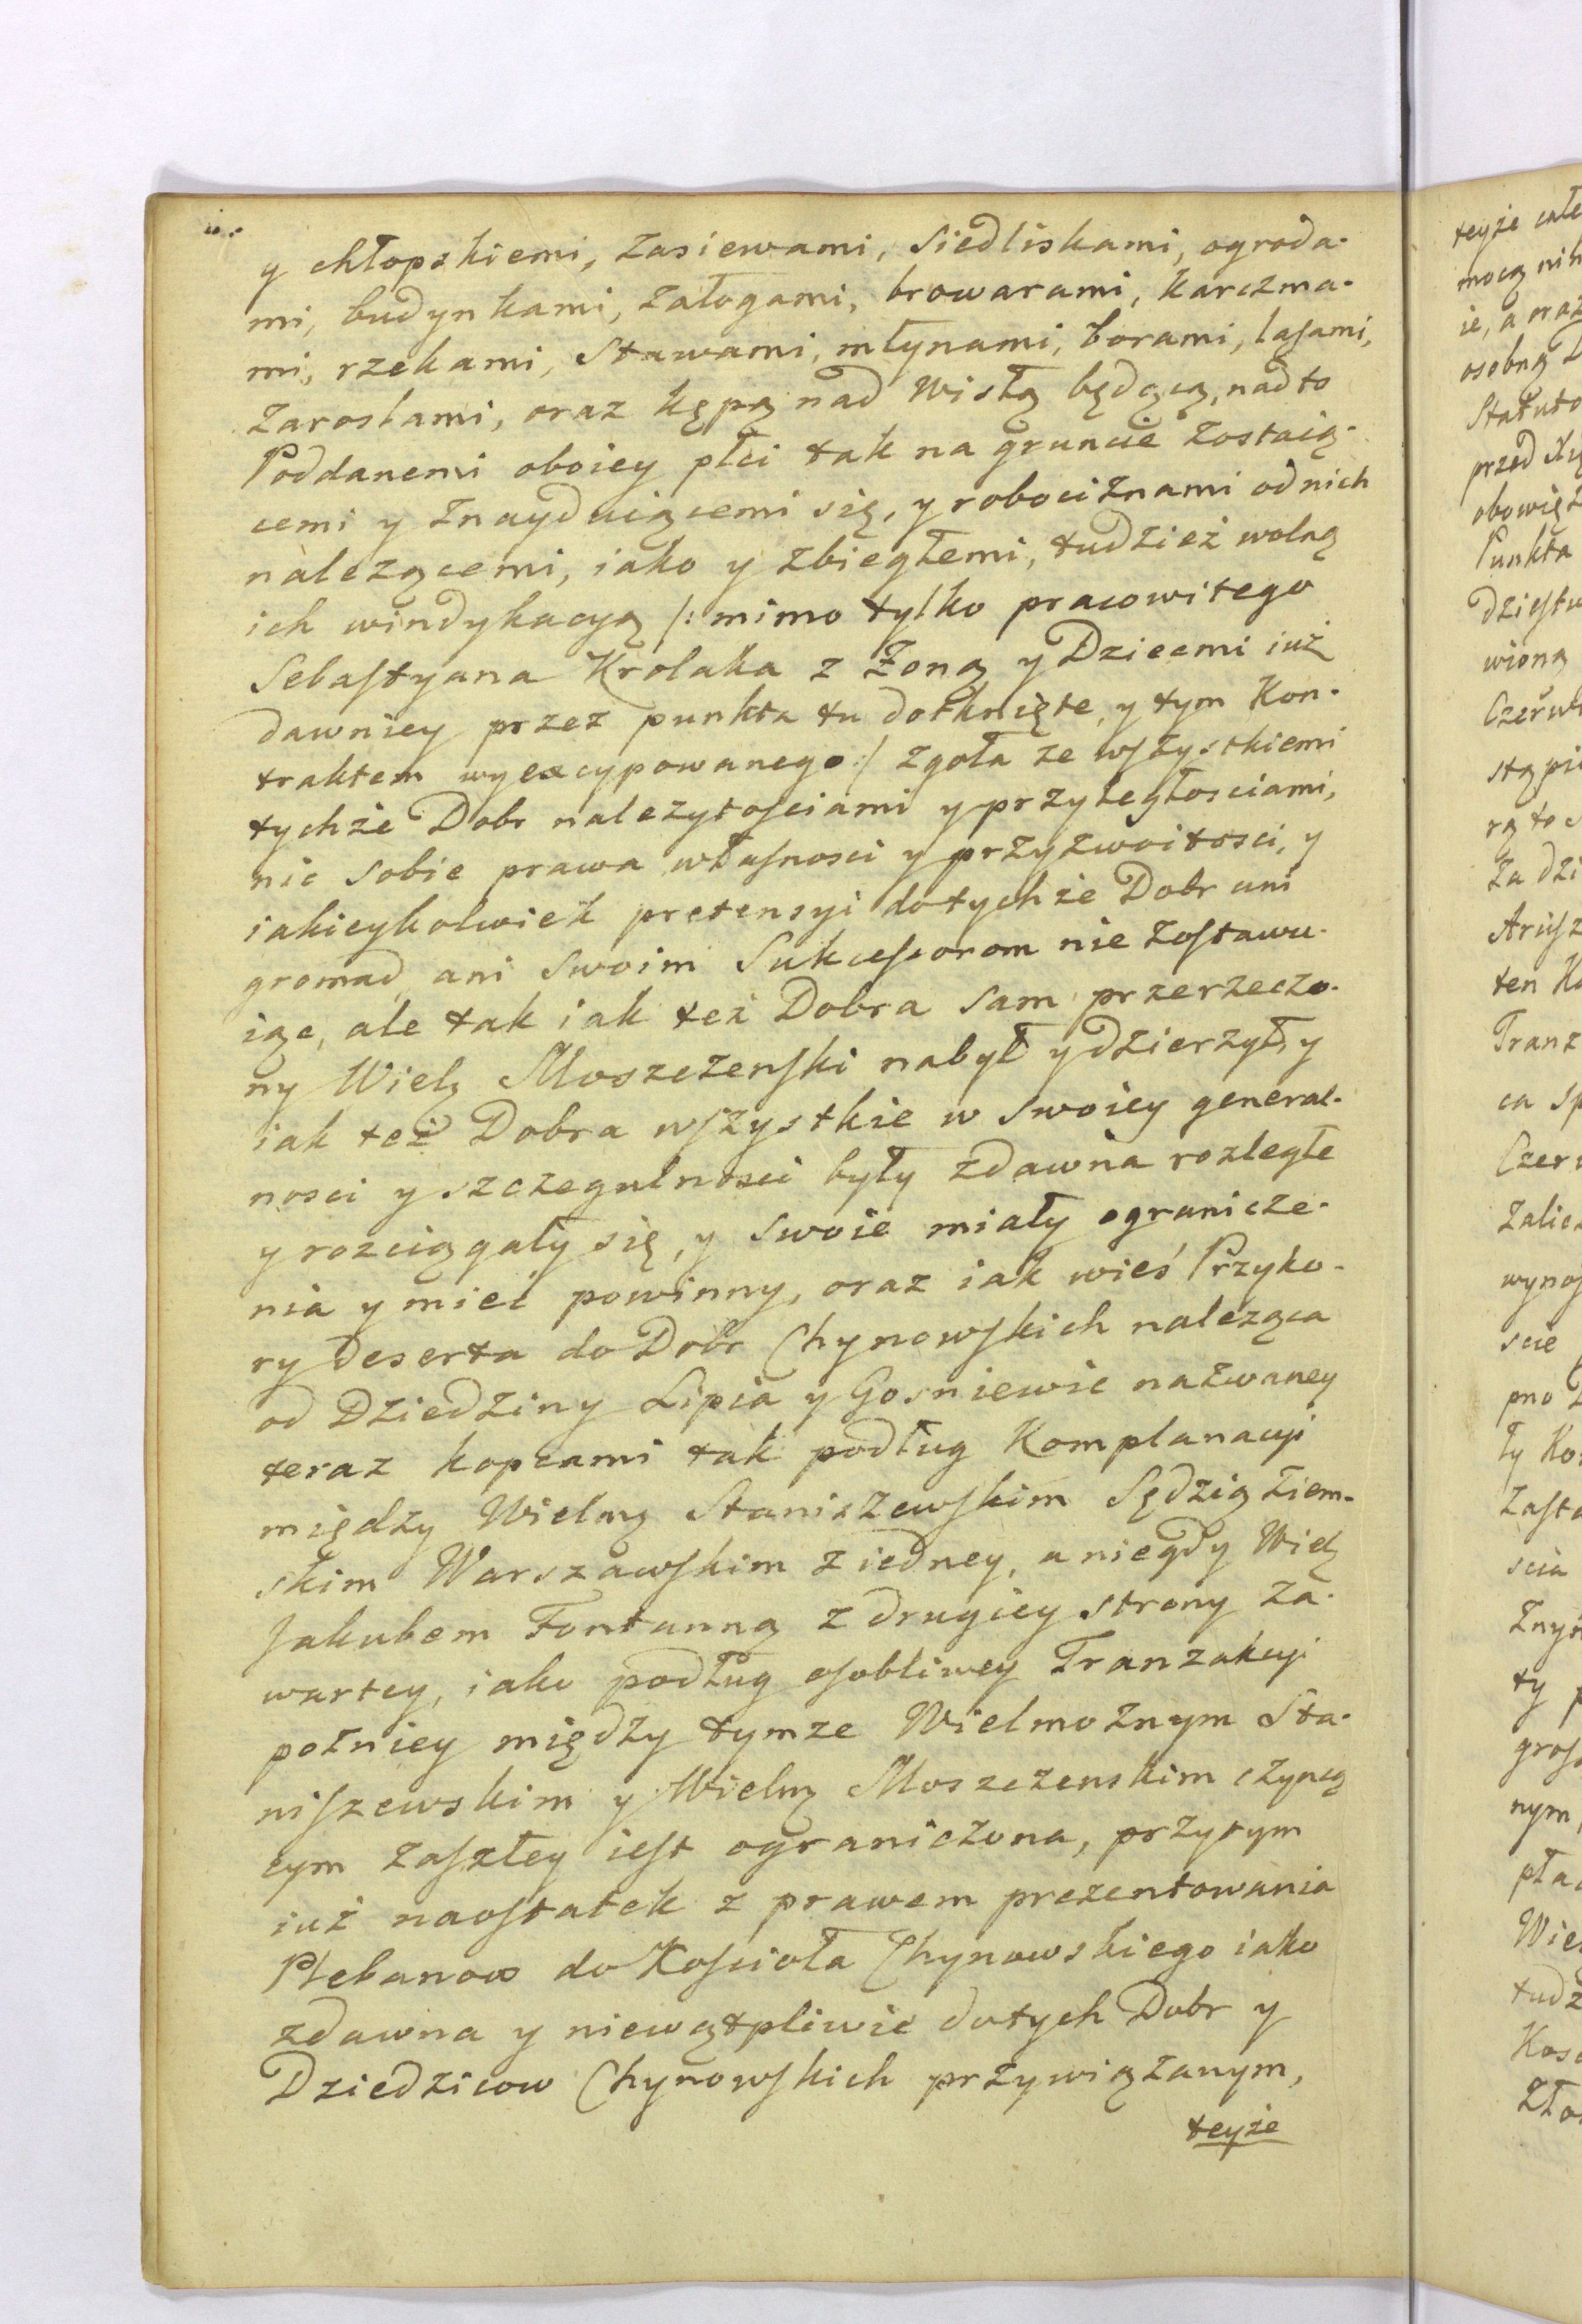 y chłopskiemi, zasiewami, Siedliskami, ogroda-
mi, budynkami, załogami, browarami, karczma-
mi, rzekami, Stawami, młynami, borami, lasami,
zaroslami, oraz kępą nad Wisłą będącą, nadto
Poddanemi oboiey płci tak na gruncie zostaią-
cemi y znayduiącemi się, y robociznami od nich
nalezącemi, iako y zbiegłemi, tudzież wolną
ich windykacyą /: mimo tylko pracowitego
Sebastyana Krolaka z Zoną y Dziecmi iuż
dawniey przez punkta tu dotknięte, y tym Kon-
traktem wyexcypowanego :/ zgoła ze wszystkiemi
tychże Dobr nalezytosciami y przyległosciami,
nic sobie prawa własnosci y przyzwoitosci, y
iakieykolwiek pretensyi do tychże Dobr ani
gromad, ani Swoim Sukcessorom nie zostawu-
iąc, ale tak iak też Dobra Sam przerzeczo-
ny Wielg Moszczenski nabył y dzierzył, y
iak też Dobra wszystkie w Swoiey general-
nosci y szczegulnosci były zdawna rozległe
y rozciągały się, y Swoie miały ogranicze-
nia y mieć powinny, oraz iak wieś Przyko-
ry deserta do Dobr Chynowskich naleząca
od Dziedziny Lipia y Gosniewic nazwaney
teraz kopcami tak podług Komplanacyi
między Wielmg Staniszewskim Sędzią Ziem-
skim Warszawskim z iedney, a niegdy Wielg
Jakubem Fontanną z drugiey strony za-
wartey, iako podług osobliwey Tranzakcyi
pozniey między tymze Wielmoznym Sta-
niszewskim y Wielmg Moszczenskim czynią
cym zaszłey iest ograniczona, przytym
iuż naostatek z prawem prezentowania
Plebanow do Koscioła Chynowskiego iako
zdawna y niewątpliwie do tych Dobr y
Dziedzicow Chynowskich przywiązanym,
teyże
teyże całe
mocą nin
ie, a oraz
osobną
Statuto
przed
obowiąz
Punkta
dziestw
wioną
Czerw
stąpi
rą to
za dzi
Arusz
ten Ko
Tranz
ca sp
Czer
zalic
wynos
scie
pno
ty Ko
zasta
scia
ty p
gros
nym,
pła
Wie
tudz
Kos
Zło